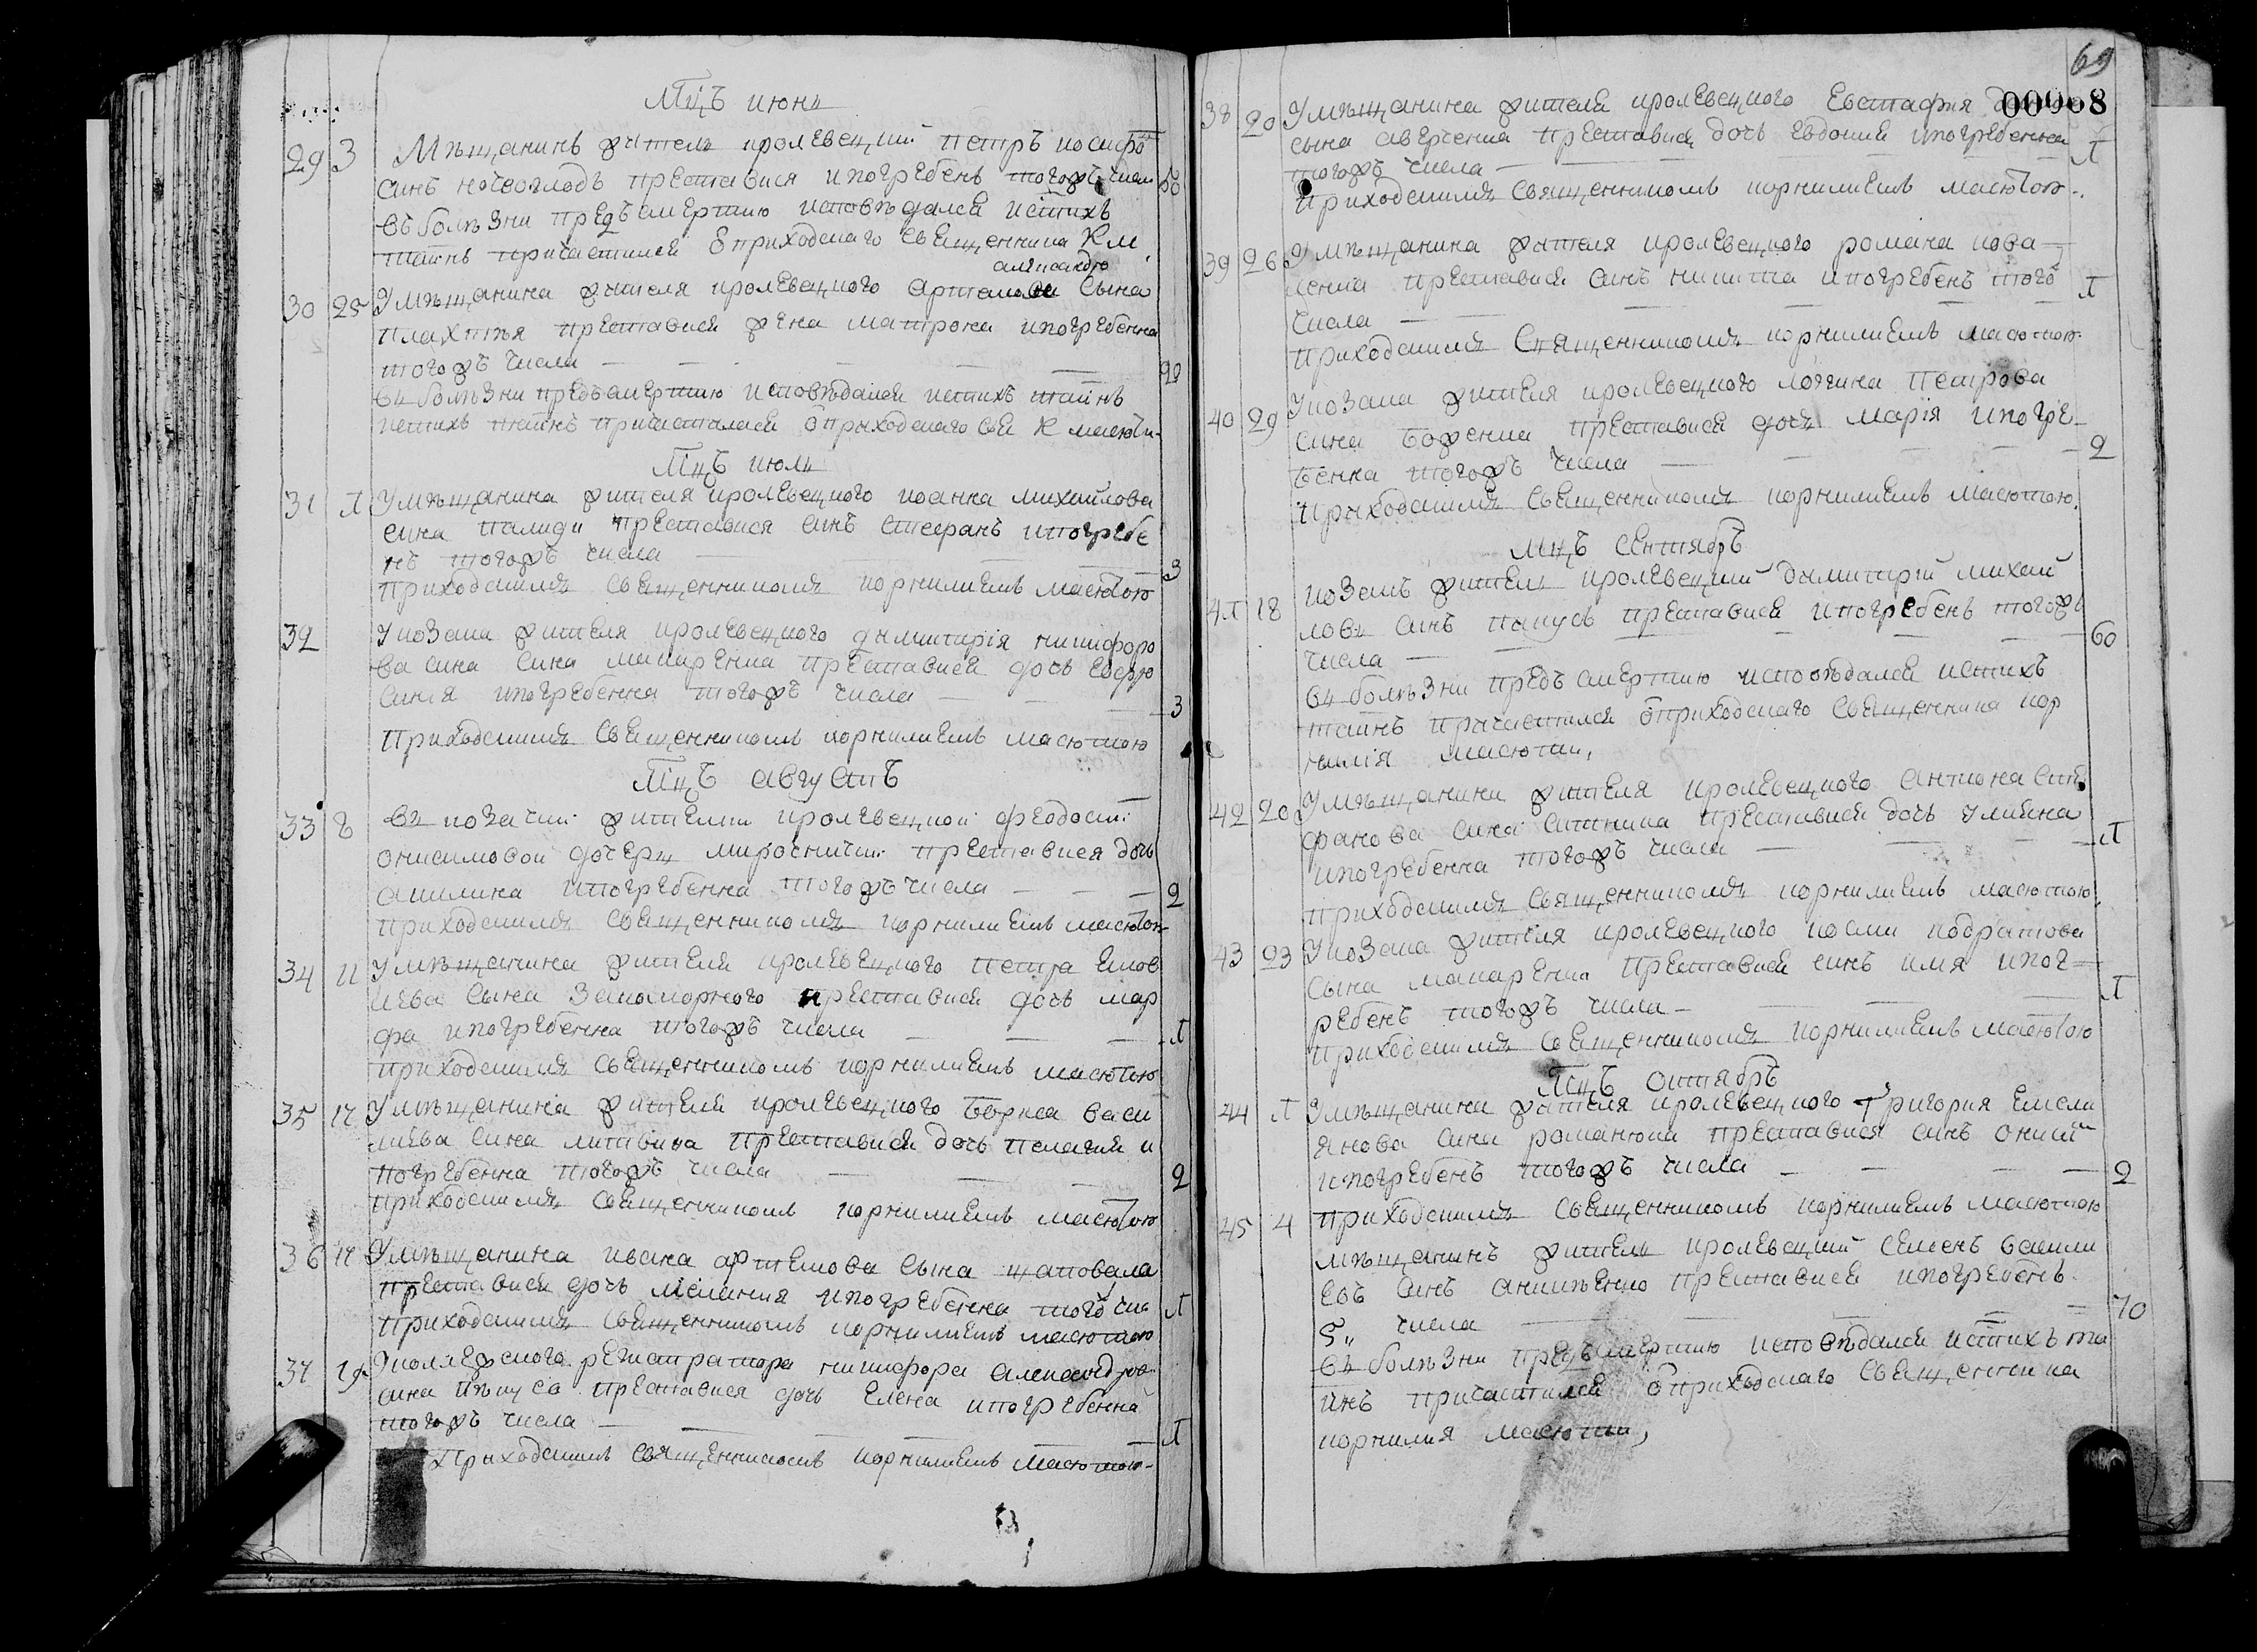 Мцъ июнь
29 3 Мѣщанинъ житель кролевецкий петръ иосифо
синъ преставися и погребенъ тогожъ числ 50
въ болѣзни предъ смертию исповѣдался и стихъ
таинъ причастился ѿ приходскаго священника К М
александр
30 25 У мѣщанина жителя кролевецкого сына
плахтѣя преставися жена матрона и погребенна
тогожъ числа 20
въ болѣзни предъ смертию исповѣдалася и стихъ таинъ
и стихъ таинъ причасталася ѿ прыходского свя К масюти
Мцъ июль
31 1 У мѣщанина жителя кролевецкого иоанна михайлова
сина палиди преставися синъ стефанъ и погребе
нъ тогожъ числа 3
приходскимъ священникомъ корнилиемъ масютою
32 У козака жителя кролевецкого дымитрія никифоро
ва сина сина макаренка преставися дочь евфро
синия и погребенна тогожъ числа 3
приходскимъ священникомъ корнилиемъ масютою
Мцъ августъ
33 8 въ козачки жителки кролевецкой феодосии
онисимовой дочери мирочнички преставися дочь
акилина и погребенна тогожъ числа 2
приходскимъ священникомъ корнилиемъ масютою
34 11 У мѣщанина жителя кролевецкого петра
сына заможного преставися дочь мар
фа и погребенна тогожъ числа 1
приходскимъ священникомъ корнилиемъ масютою
35 17 У мѣщанина жителя кролевецкого бориса васи
лиева сина литвина преставися дочь пелагия и
погребенна тогожъ числа 2
приходскимъ священникомъ корнилиемъ масютою
36 17 У мѣщанина ивана артемова сына шаповала
преставися дочь мелания и погребенна того чис 1
приходскимъ священникомъ корнилиемъ масютою
37 19 У коллежского регистратора никифора александров
сина преставися дочь елена и погребенна
тогожъ числа 1
Прыходскимъ священникомъ корнилиемъ масютою
69
00968
38 20 У мѣщанина жителя кролевецкого евстафия
сына аврсения преставися дочь евдокия и погребенна
тогожъ числа 1
приходскимъ священникомъ корнилиемъ масютою
39 26 У мѣщанина жителя кролевецкого романа кова
ленка преставися синъ никита и погребенъ того
числа 1
приходскимъ священникомъ корнилиемъ масютою
40 29 У козака жителя кролевецкого логгина петрова
сина боженка преставися дочь марія и погре
бенна тогожъ числа 2
прыходскимъ священникомъ корнилиемъ масютою
Мцъ сентябръ
41 18 козакъ житель кролевецкий дымитрій михай
ловъ синъ преставися и погребенъ тогожъ
числа 60
въ болѣзни предъ смертию исповѣдался и стихъ
таинъ причастился ѿ приходскаго священника кор
нилія масюти,
42 20 У мѣщанина жителя кролевецкого антона сте
фанова сина ситника преставися дочь улияна
и погребенна тогожъ числа 1
приходскимъ священникомъ корнилиемъ масютою
43 23 У козака жителя кролевецкого козми кодратова
сына макаренка преставися синъ имя и пог
ребенъ тогожъ числа 1
приходскимъ священникомъ корнилиемъ масютою
Мцъ октябръ
44 1 У мѣщанина жителя кролевецкого григория емели
янова сина романюка преставися синъ
и погребенъ тогожъ числа 2
приходскимъ священникомъ корнилиемъ масютою
45 4
мѣщанинъ житель кролевецкий семенъ васили
евъ синъ аникѣенко преставися и погребенъ
5 числа 70
въ болѣзни предъ смертию исповѣдался и стихъ та
инъ причастился ѿ приходскаго священника
корнилия масюти,